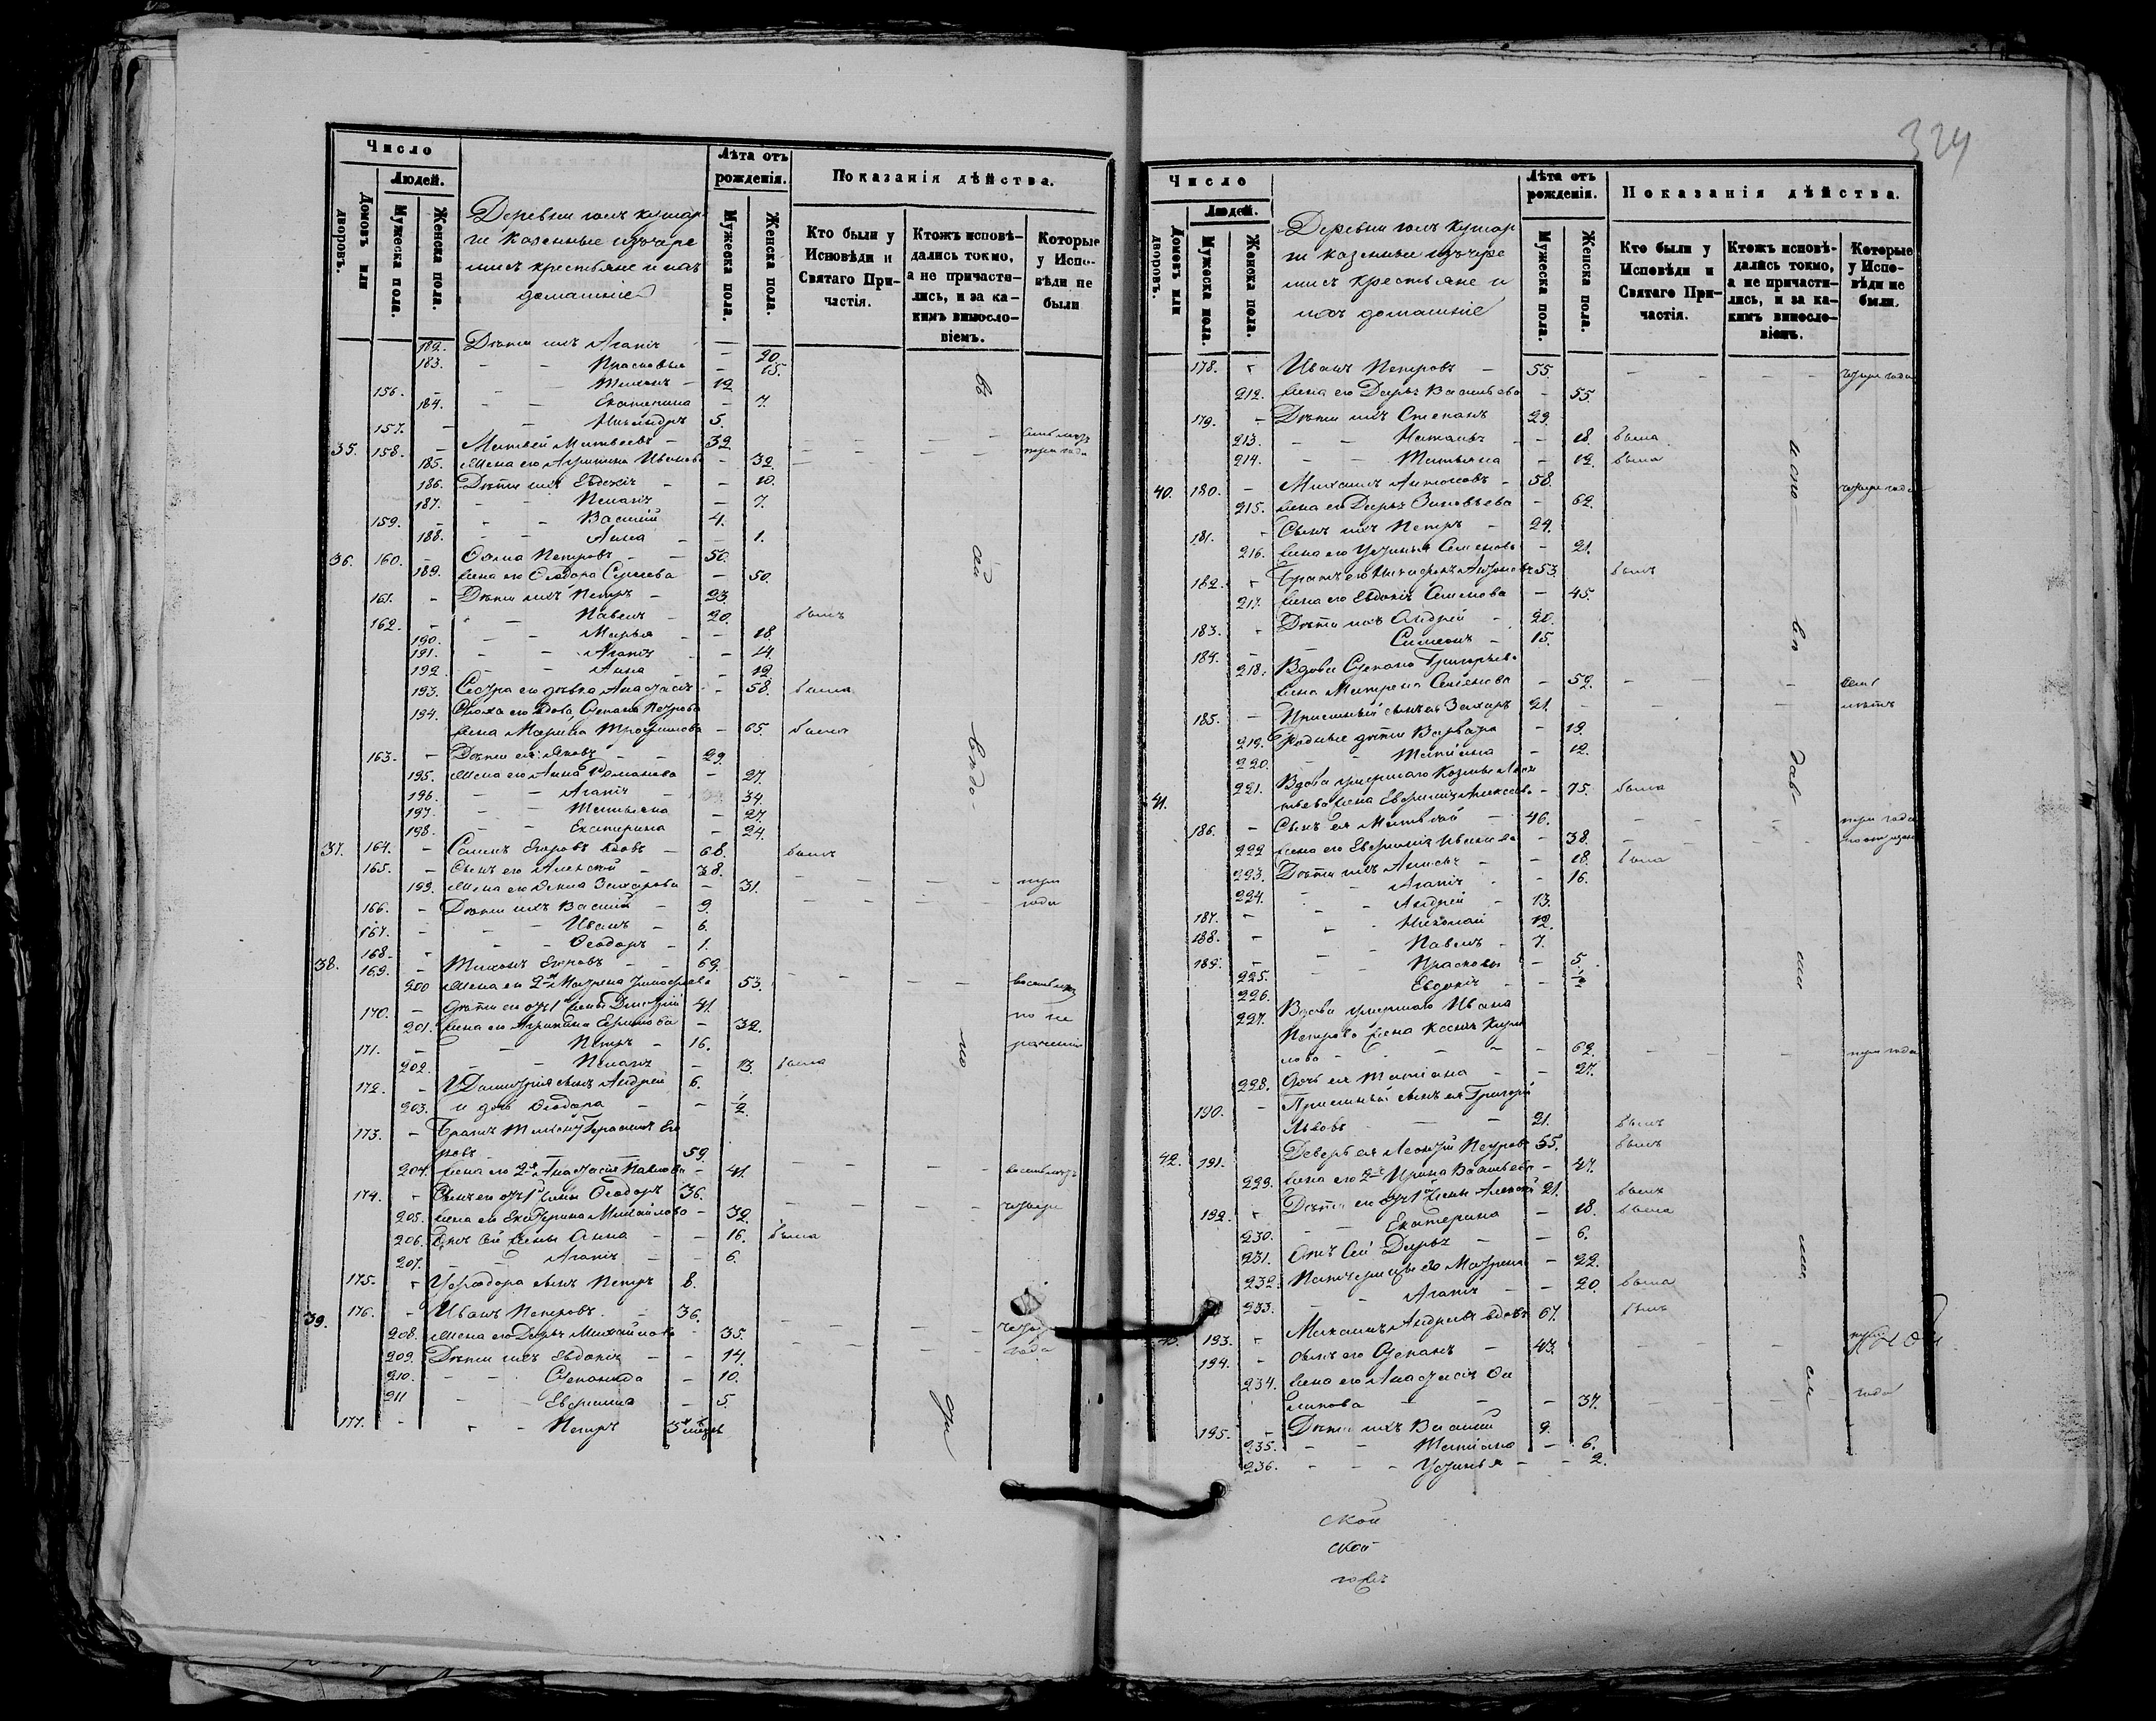 Число
Людей.
Домовъ или дворовъ.
Мужеска пола.
Женска пола.
Деревни
казенные
крестьяне и ихъ
домашніе
Лѣта отъ рожденія.
Мужеска пола.
Женска пола.
Показанія дѣйства.
Кто были у Исповѣди и Святаго Причастія.
Ктожъ исповѣдались токмо, а не причастились, и за какимъ винословіемъ.
Которые у Исповѣди не были
182. Дѣти ихъ Агапія - 20.
183. - - Прасковья - 15.
156. - - Тихонъ - 12.
184. - - Екатерина - 7.
157. - - 5.
35. 158. - Матвей Матвеевъ - 32
185. Жена его Агрипина Иванова - 32.
186. Дѣти ихъ Евдокія - 10.
187. - - Пелагія - 7.
159. - - Василій 4.
188. - - Анна - 1.
36. 160. - Фома Петровъ - 50.
189. жена его Феодора Сергеева - 50.
161. - Дѣти ихъ Петръ - 23.
162. - - Павелъ - 20. былъ
190. - - Марья - 18.
191. - - Агапія - 14
192. - - Анна - 12
193. Сестра его девка Анастасія - 58. была
194. Сноха его вдова, Степана Петрова
жена Марина Трофимова - 65. была
163. - Дѣти ея: Яковъ - 29.
195. Жена его Анна Романова - 27.
196. - - Агапія - 34.
197. - - Татьяна - 27.
198. - - Екатерина - 24.
37. 164. - Егоровъ вдовъ - 68. былъ
165. - Сынъ его Алексей - 38.
199. Жена его Анна Захарова - 31. три
166. - Дѣти ихъ Василій - 9. года
167. - - Иванъ - 6.
168. - - Феодоръ - 1.
38. 169. - Тихонъ Егоровъ - 69.
200 Жена его 2я Матрена Тимофеева 53.
170. - Дѣти его отъ 1 жены Дмитрій 41. по не
201. жена его Агрипина Ефимова - 32. раченію
171. - - Петръ - 16.
202. - - Пелагія - 13. была
172. - У Дмитрія сынъ Андрей 6.
203. и дочь Феодора - 1/2
173. - Братъ Тихону Герасимъ Его
ровъ - 59.
204. жена его 2я Анастасія Павлова - 41.
174. - Сынъ его отъ 1й жены Феодоръ 36.
205. жена его Екатерина Михайлова - 32. четыре
206. Отъ сей жены Анна - 16. была
207. - - Агапія - 6.
175. - У Феодора сынъ Петръ 8.
39. 176. - Иванъ Петровъ 36.
208. Жена его Дарья Михайлова 35. четыре
209. Дѣти ихъ Евдокія - 14. года
210. - - Степанида - 10.
211 - - Евфимія - 5.
177. - - Петръ
324
Число
Людей.
Домовъ или дворовъ.
Мужеска пола.
Женска пола.
Деревни
казенные
крестьяне и
ихъ домашніе
Лѣта отъ рожденія.
Мужеска пола.
Женска пола.
Показанія дѣйства.
Кто были у Исповѣди и Святаго Причастія.
Ктожъ исповѣдались токмо, а не причастились, и за какимъ винословіемъ.
Которые у Исповѣди не были.
178. - Иванъ Петровъ - 55. четыре года
212. жена его Дарья Васильева - 55.
179. - Дѣти ихъ Степанъ 23.
213. - - Наталья - 18. была
214. - - Татьяна - 12. была
40. 180. - Михаилъ Антоновъ - 58. четыре года
215. жена его Дарья Зиновьева - 62.
181. - Сынъ ихъ Петръ - 24.
216. жена его Устинья Семенова - 21.
182. - Братъ его 53. былъ
217. жена его Евдокія Семенова - 45.
183. - Дѣти ихъ Андрей - 20.
184. - Симеонъ - 15.
218. Вдова Степана Григорьева
жена Матрена Семенова - 52. семь
185. - Пріемный сынъ ея Захаръ 21. лѣтъ
219. Родные дѣти Варвара - 13.
220. - - Татіана - 12.
41. 221. Вдова умершаго Козьмы
жена Евфимія Алексеева - 75. была
186. - Сынъ ея Матвей - 46. три года
222 жена его Евфимія Иванова - 38.
223. Дѣти ихъ - 18. была
224. - Агапія - 16.
187. - - Андрей - 13.
188. - - Николай 12.
189. - - Павелъ - 7.
225. - - Прасковья - 5.
226. Евдокія - 1/2
227. Вдова умершаго Ивана
Петрова жена Ксенія Кири
лова - 62. три года
228. Дочь ея Татіана - 27.
190. - Пріемный сынъ ея Григорій
Львовъ - 21. былъ
42. 191. Деверь ея Леонтій Петровъ 55. былъ
229. жена его 2я Ирина Васильева - 47.
192. - Дѣти его отъ 1й жены Алексей 21. былъ
230. - Екатерина - 18. была
231. Отъ сей Дарья - 6.
232. Падчерицы его Матрена - 22.
233. - - Агапія - 20. была
43. 193. - Михаилъ Андреевъ вдовъ 67. былъ
194. - Сынъ его Степанъ - 43. три
234. жена его Анастасія Фи
липова - 37. года
195. - Дѣти ихъ Василій 9.
235. - - Татіана - 6.
236. - - Устинья - 2.
ской
ской